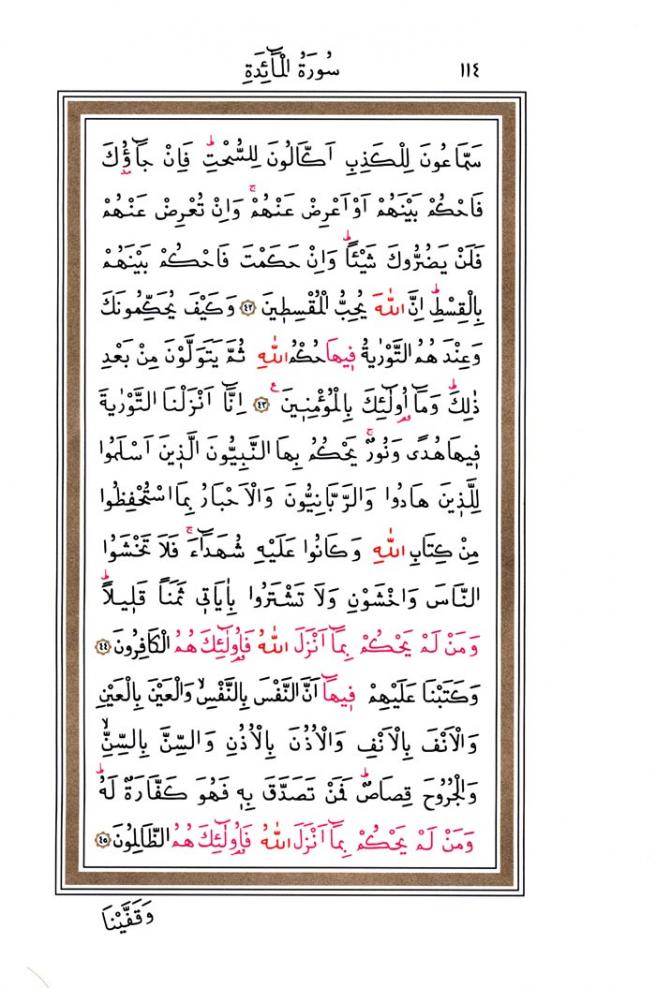 سُورَةُ الْمَٓائِدَةِ ١١٤
سَمَّاعُونَ لِلْكَذِبِ اَكَّالُونَ لِلسُّحْتِۜ فَاِنْ جَٓاؤُ۫كَ
فَاحْكُمْ بَيْنَهُمْ اَوْ اَعْرِضْ عَنْهُمْۚ وَاِنْ تُعْرِضْ عَنْهُمْ
فَلَنْ يَضُرُّوكَ شَيْـًٔاۜ وَاِنْ حَكَمْتَ فَاحْكُمْ بَيْنَهُمْ
بِالْقِسْطِۜ اِنَّ اللّٰهَ يُحِبُّ الْمُقْسِط۪ينَ ﴿٤٢﴾ وَكَيْفَ يُحَكِّمُونَكَ
وَعِنْدَهُمُ التَّوْرٰيةُ ف۪يهَا حُكْمُ اللّٰهِ ثُمَّ يَتَوَلَّوْنَ مِنْ بَعْدِ
ذٰلِكَۜ وَمَٓا اُو۬لٰٓئِكَ بِالْمُؤْمِن۪ينَ۟ ﴿٤٣﴾ اِنَّٓا اَنْزَلْنَا التَّوْرٰيةَ
ف۪يهَا هُدًى وَنُورٌۚ يَحْكُمُ بِهَا النَّبِيُّونَ الَّذ۪ينَ اَسْلَمُوا
لِلَّذ۪ينَ هَادُوا وَالرَّبَّانِيُّونَ وَالْاَحْبَارُ بِمَا اسْتُحْفِظُوا
مِنْ كِتَابِ اللّٰهِ وَكَانُوا عَلَيْهِ شُهَدَٓاءَۚ فَلَا تَخْشَوُا
النَّاسَ وَاخْشَوْنِ وَلَا تَشْتَرُوا بِاٰيَات۪ي ثَمَنًا قَل۪يلًاۜ
وَمَنْ لَمْ يَحْكُمْ بِمَٓا اَنْزَلَ اللّٰهُ فَاُو۬لٰٓئِكَ هُمُ الْكَافِرُونَ ﴿٤٤﴾
وَكَتَبْنَا عَلَيْهِمْ ف۪يهَٓا اَنَّ النَّفْسَ بِالنَّفْسِۙ وَالْعَيْنَ بِالْعَيْنِ
وَالْاَنْفَ بِالْاَنْفِ وَالْاُذُنَ بِالْاُذُنِ وَالسِّنَّ بِالسِّنِّۙ
وَالْجُرُوحَ قِصَاصٌۜ فَمَنْ تَصَدَّقَ بِه۪ فَهُوَ كَفَّارَةٌ لَهُۜ
وَمَنْ لَمْ يَحْكُمْ بِمَٓا اَنْزَلَ اللّٰهُ فَاُو۬لٰٓئِكَ هُمُ الظَّالِمُونَ ﴿٤٥﴾
وَقَفَّيْنَا